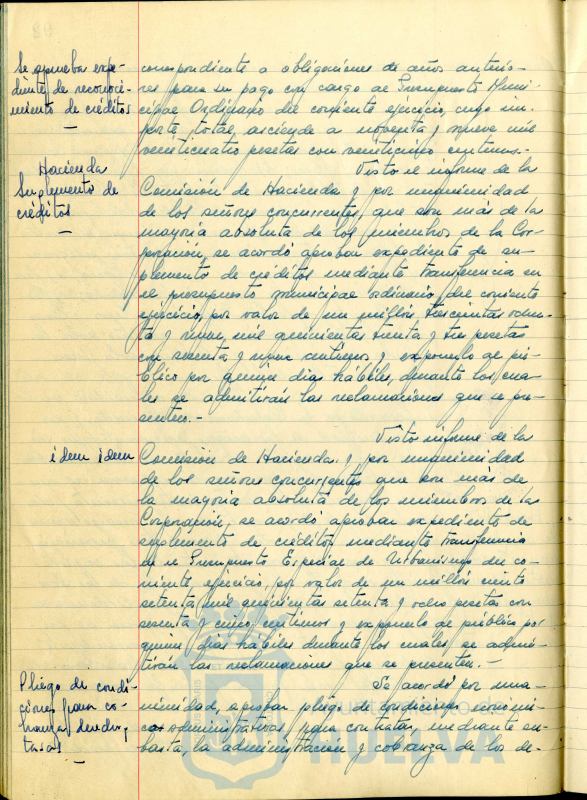 Se aprueba expe-
diente de reconoci-
miento de créditos
correspondiente a obligaciones de años anterio-
res para su pago con cargo al Presupuesto Muni-
cipal Ordinario del corriente ejercicio, cuyo im-
porte total, asciende a noventa y nueve mil
veinticuatro pesetas con veinticinco céntimos.-
Hacienda
Suplemento de
créditos
Visto el informe de la
Comisión de Hacienda y por unanimidad
de los señores concurrentes, que son más de la
mayoría absoluta de los miembros de la Cor-
poración, se acordó aprobar expediente de su-
plemento de créditos mediante transferencia en
el presupuesto municipal ordinario del corriente
ejercicio, por valor de un millón trescientas ochen-
ta y nueve mil quinientas treinta y tres pesetas
con setenta y nueve céntimos y exponerlo al pú-
blico por quince días hábiles, durante los cua-
les se admitirán las reclamaciones que se pre-
senten.-
idem idem
Visto informe de la
Comisión de Hacienda y por unanimidad
de los señores concurrentes que son más de
la mayoría absoluta de los miembros de la
Corporación, se acordó aprobar expediente de
suplemento de créditos mediante transferencia
de el Presupuesto Especial de Urbanismo del co-
rriente ejercicio, por valor de un millón ciento
setenta mil quinientas setenta y ocho pesetas con
sesenta y cinco céntimos y exponerlo al público por
quince días hábiles durante los cuales se admi-
tirán las reclamaciones que se presenten.-
Pliego de condi-
ciones para co-
branza derechos y
tasas
Se acordó por una-
nimidad, aprobar pliego de condiciones económi-
co-administrativas para contratar, mediante su-
basta, la administración y cobranza de los de-
HUELVA